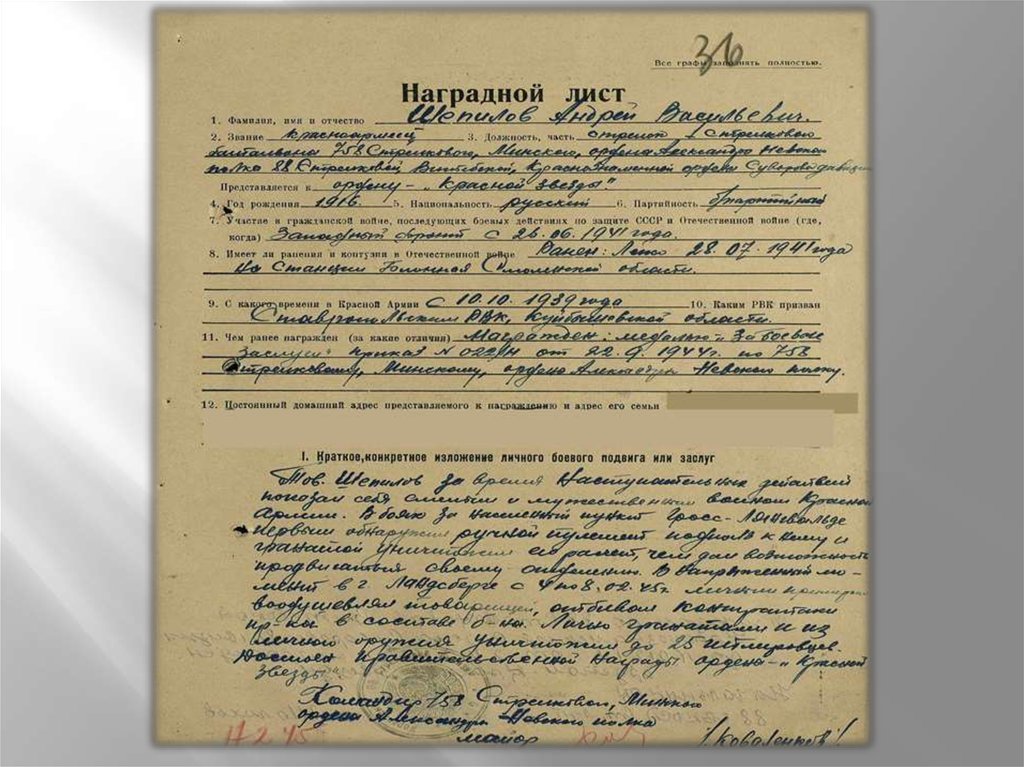 36
Все графы заполнять полностью.
Наградной лист
1. Фамилия, имя и отчество Шепилов Андрей Васильевич.
2. Звание Красноармеец 3. Должность, часть стрелок 1 стрелкового
батальона 758 Стрелкового, Минского, ордена Александра Невского
полка 88 Стрелковой Витебской, Краснознаменной ордена Суворова дивизии
Представляется к ордену - „Красной звезды"
4. Год рождения 1916 5. Национальность русский 6. Партийность б/партийный
7. Участие в гражданской войне, последующих боевых действиях по защите СССР и Отечественной войне (где,
когда) Западный фронт с 26.06.1941 года.
8. Имеет ли ранения и контузии в Отечественной войне Ранен: Легко 28.07.1941 года
на Станции Смоленской области.
9. С какого времени в Красной Армии с 10.10.1939 года 10. Каким РВК призван
Ставропольским РВК, Куйбышевской области.
11. Чем ранее награжден (за какие отличия) Награжден: медалью „За боевые
заслуги" приказ N 022/н от 22.9.1944 г. по 758
Стрелковому, Минскому, ордена Александра Невского полку.
12. Постоянный домашний адрес представляемого к награждению и адрес его семьи
I. Краткое, конкретное изложение личного боевого подвига или заслуг
Тов. Шепилов за время Наступательных действий
показал себя смелым и мужественным воином Красной
Армии. В бою за населенный пункт Гросс-
первым обнаружил ручной пулемет подполз к нему и
гранатой уничтожил его расчет, чем дал возможность
продвигаться своему отделению. В напряженный мо-
мент в г. Ландсберге с 4 по 8.02.45г. личным примером
воодушевлял товарищей, отбивал контратаки
пр-ка в составе б-на. Лично гранатами и из
личного оружия уничтожил до 25 гитлеровцев.
Достоен правительственной награды ордена - „Красной
Звезды"
Командир 758 Стрелкового, Минского
ордена Александра-Невского полка
майор /Коваленков/